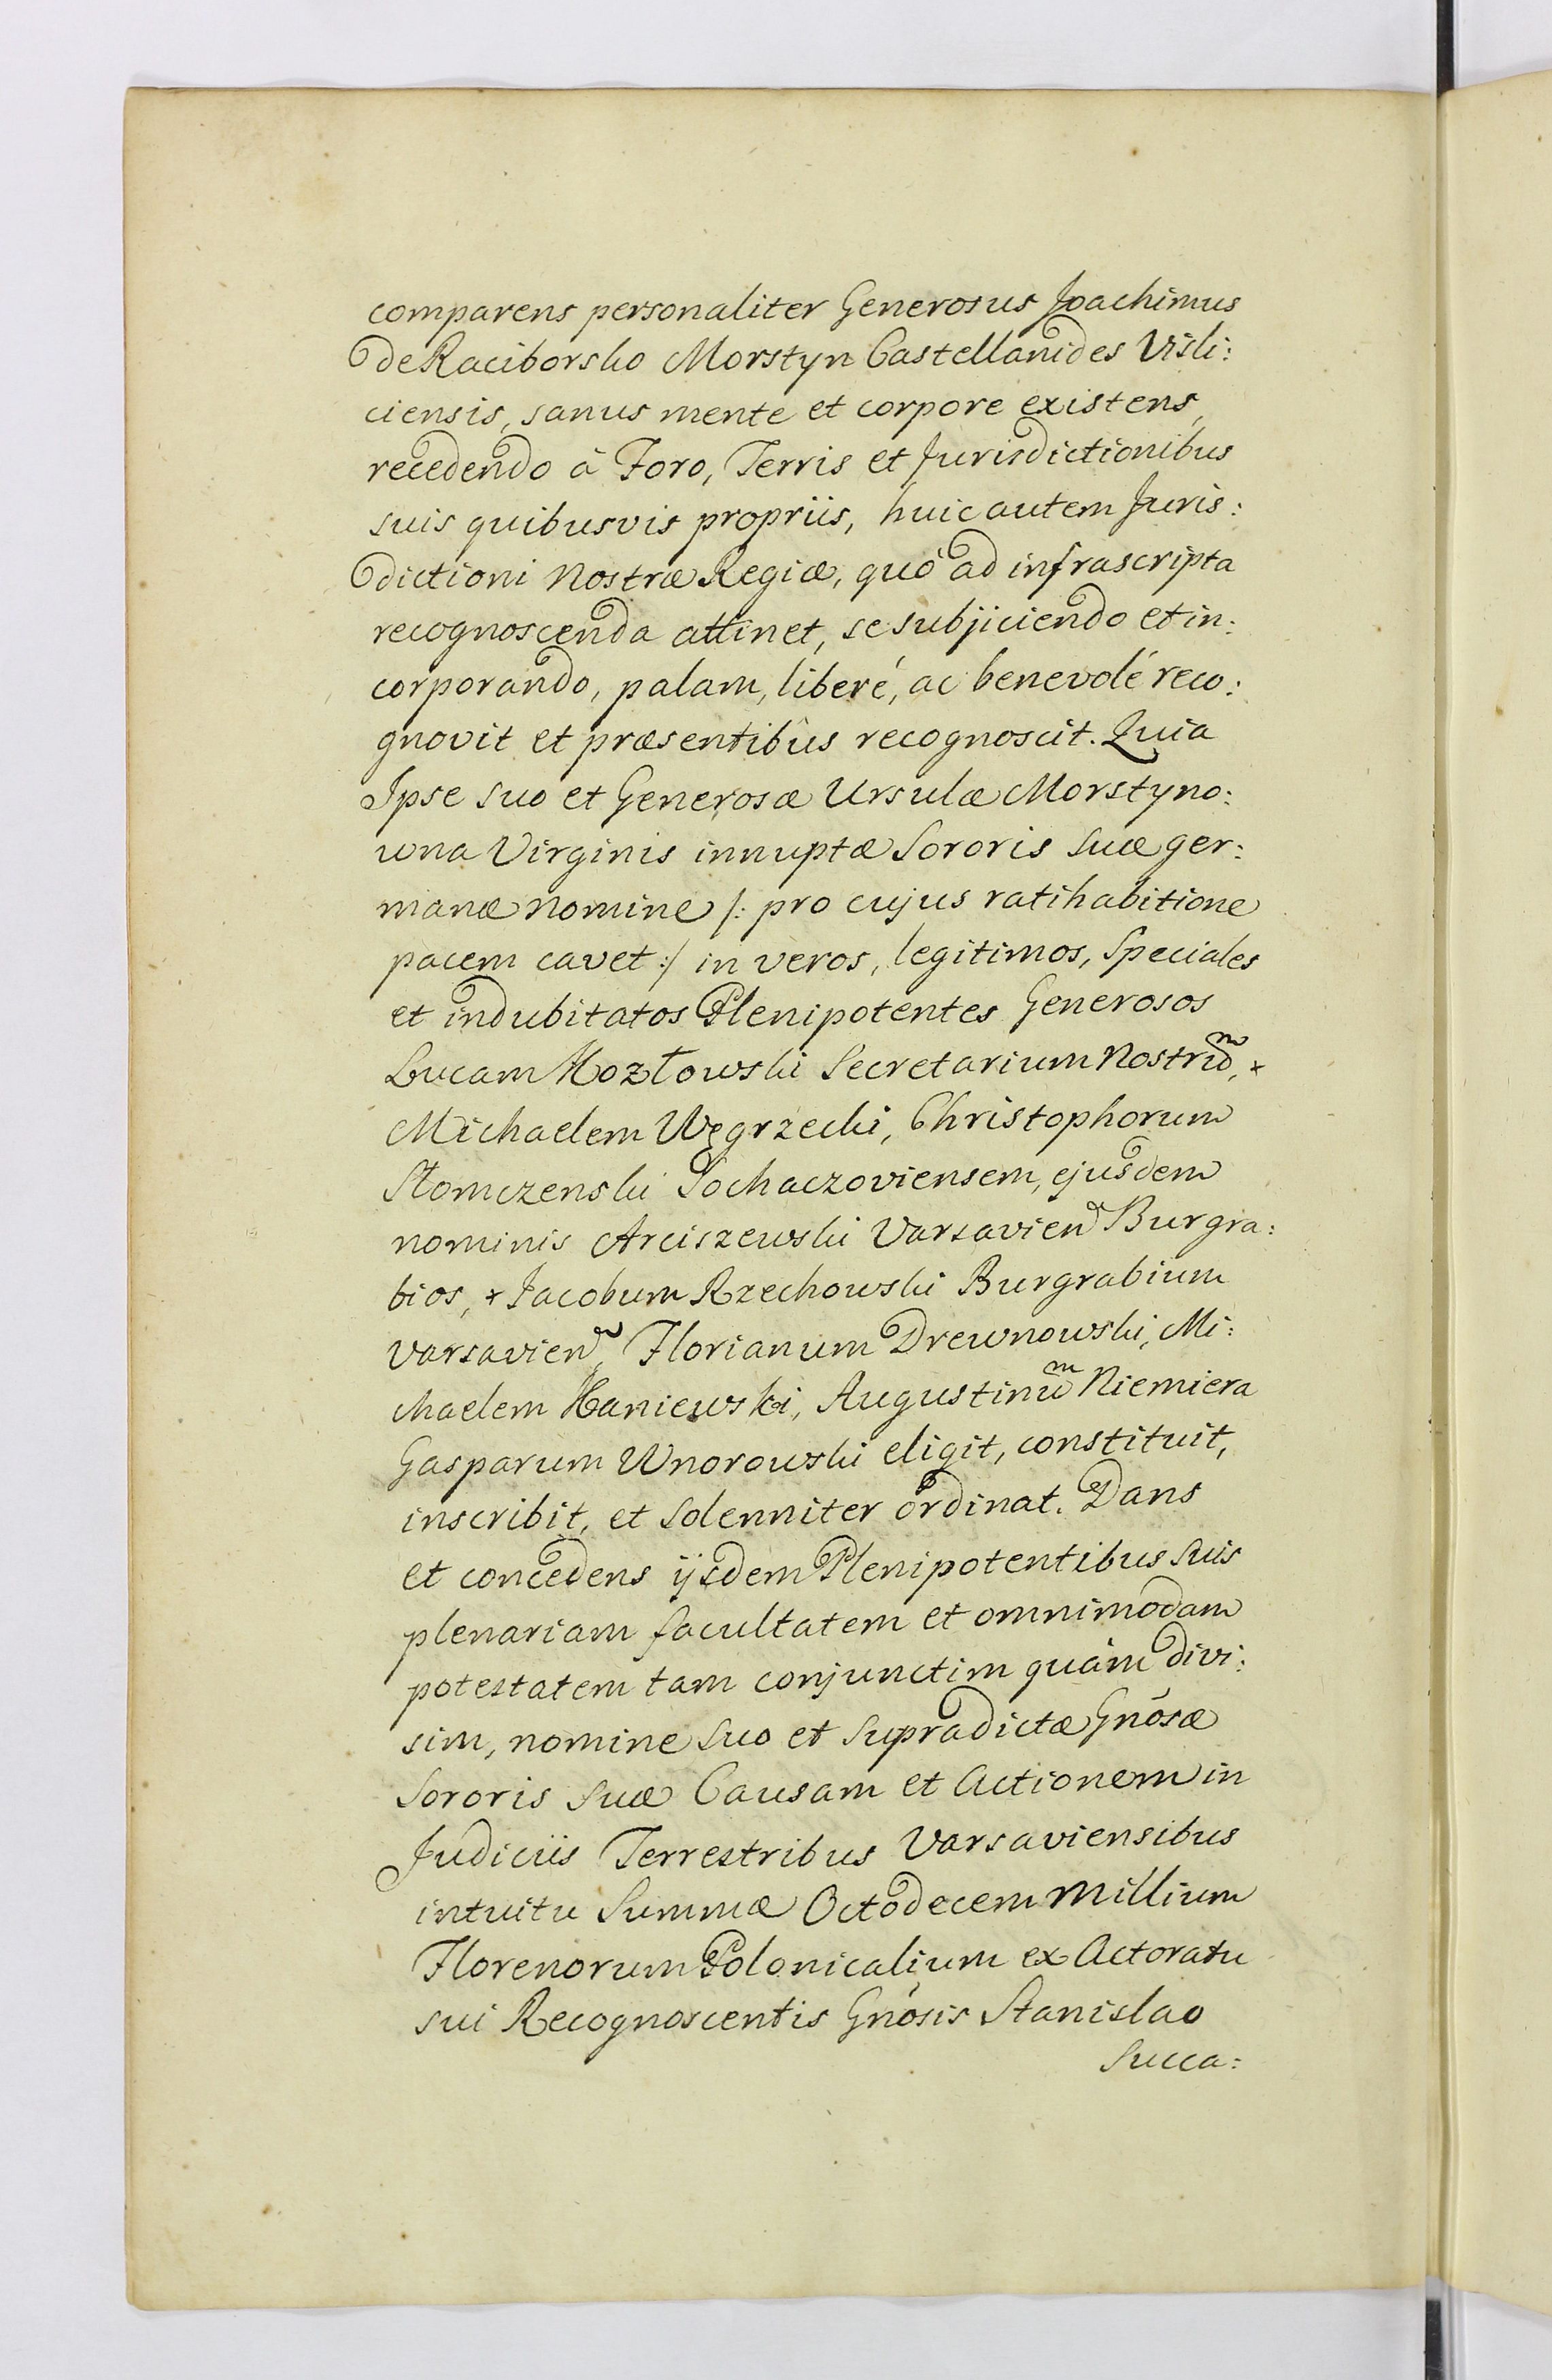 comparens personaliter Generosus Joachimus
de Raciborsko Morstyn Castellanides Visli:
ciensis, sanus mente et corpore existens,
recedendo à Foro, Terris et Jurisdictionibus
suis quibusvis propriis, huic autem Juris:
dictioni Nostræ Regiæ, quò ad infrascripta
recognoscenda attinet, se subjiciendo et in:
corporando, palam, liberé, ac benevolé reco:
gnovit et præsentibûs recognoscit. Quia
Ipse suo et Generosæ Ursulæ Morstyno:
wna Virginis innuptæ Sororis suæ ger:
manæ nomine /: pro cujus ratihabitione
pacem cavet :/ in veros, legitimos, Speciales
et indubitatos Plenipotentes Generosos
Lucam Kozłowski Secretarium Nostrum, +
Michaelem Węgrzecki, Christophorum
Słomczenski Sochaczoviensem, ejusdem
nominis Arciszewski Varsavien Burgra:
bios, + Jacobum Rzechowski Burgrabium
Varsavien, Florianum Drewnowski, Mi:
chaelem Haniewski, Augustinum Niemiera
Gasparum Wnorowski eligit, constituit,
inscribit, et solenniter ordinat. Dans
et concedens ijsdem Plenipotentibus suis
plenariam facultatem et omnimodam
potestatem tam conjunctim quàm divi:
sim, nomine suo et supradictæ Gnósæ
Sororis suæ Causam et Actionem in
Judiciis Terrestribus Varsaviensibus
intuitu Summæ Octodecem Millium
Florenorum Polonicalium ex Actoratu
sui Recognoscentis Gnósis Stanislao
Succa: